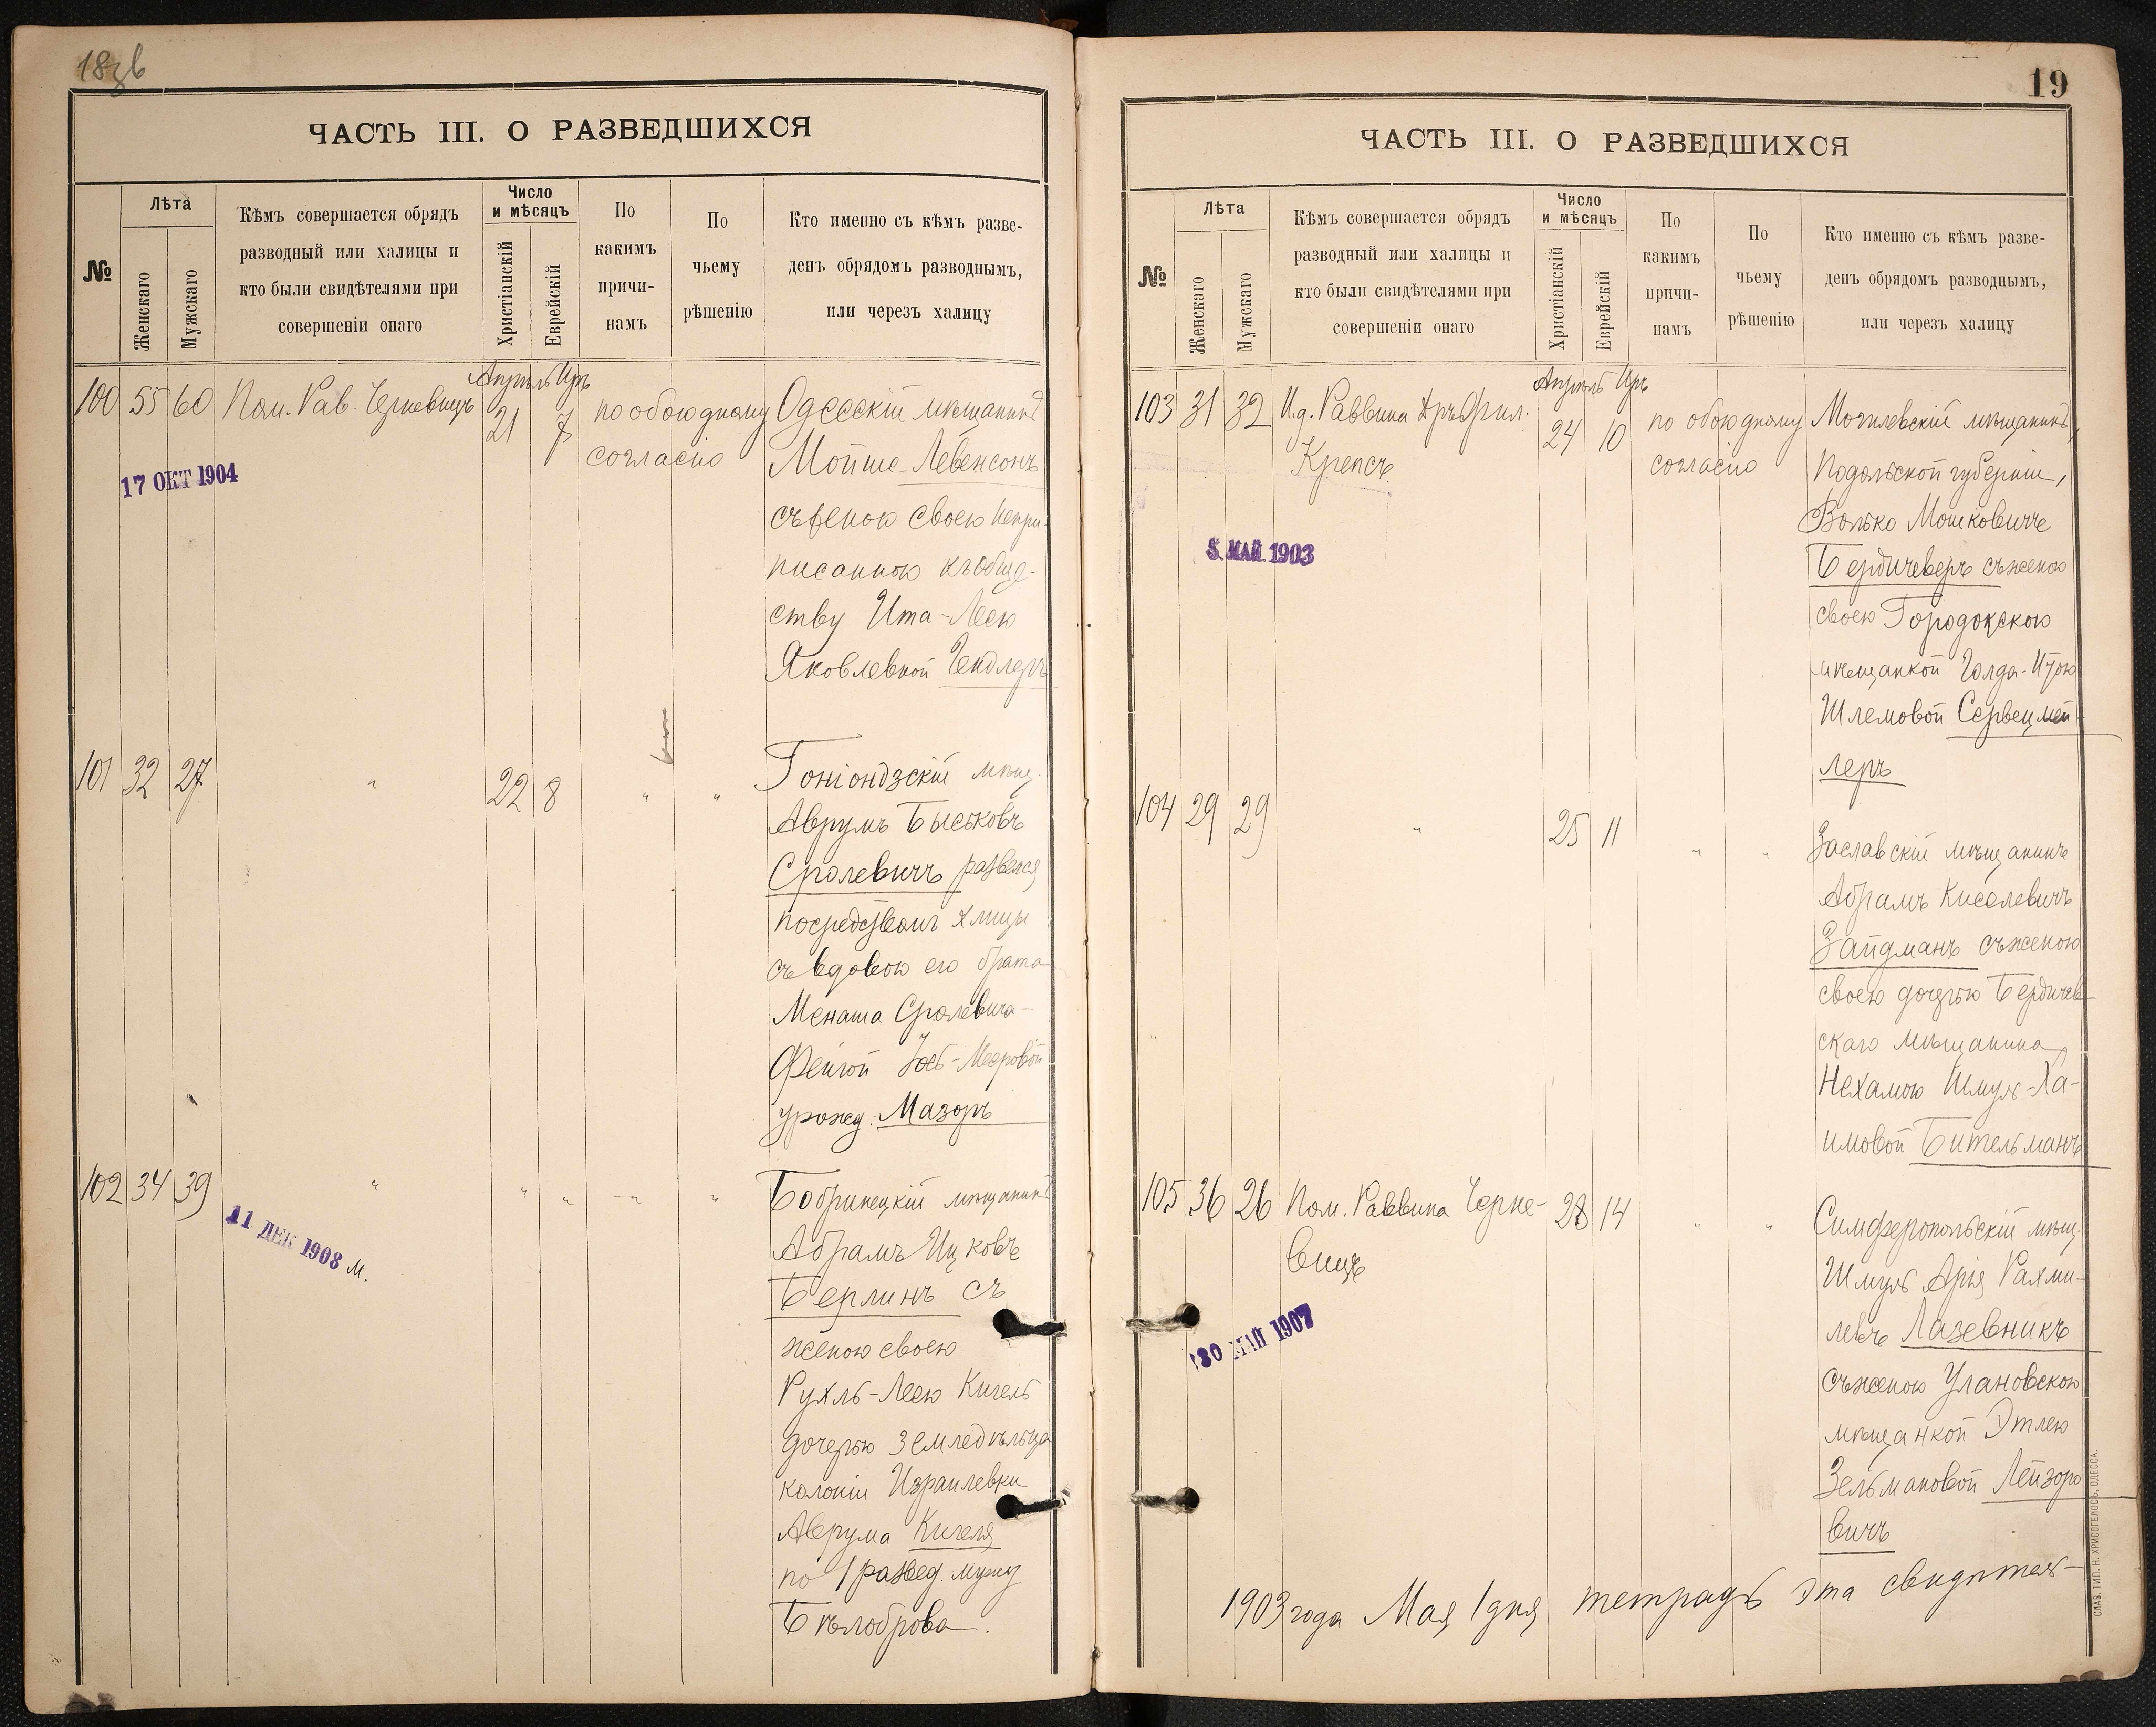 18зв
ЧАСТЬ III. О РАЗВЕДШИХСЯ
№
Лѣта
Женскаго
Мужскаго
Кѣмъ совершается обрядъ
разводный или халицы и
кто были свидѣтелями при
совершеніи онаго
Число
и мѣсяцъ
Христіанскій
Еврейскій
По
какимъ
причи-
намъ
По
чьему
рѣшенію
Кто именно съ кѣмъ разве-
денъ обрядомъ разводнымъ,
или черезъ халицу
100 55 60 Пом. Рав. Черневицъ
Апрѣль Иръ
21 7
по обоюдному
согласію
Одесскій мѣщанинъ
Мойше Левенсонъ
съ женою своею непри-
писанною къ обще-
ству Ита-Леею
Яковлевной Гендлеръ
17 ОКТ 1904
101 32 27 " 22 8 " "
Гоніондзскій мѣщ.
Аврумъ Еыськовъ
Сролевичъ развелся
посредствомъ хлицы
съ вдовою его брата
Менаша Сролевича-
Фейгой Мееровой
урожд. Мазоръ
102 34 39 " " " " "
Бобринецкій мѣщанинъ
Абрамъ Ицковъ
Берлинъ съ
женою своею
Рухль-Леею Кигель
дочерью земледѣльца
колоніи Израилевки
Аврума Кигеля
по 1 развед. мужу
Бѣлоброва.
11 ДЕК 1908 м.
19
ЧАСТЬ III. О РАЗВЕДШИХСЯ
№
Лѣта
Женскаго
Мужскаго
Кѣмъ совершается обрядъ
разводный или халицы и
кто были свидѣтелями при
совершеніи онаго
Число
и мѣсяцъ
Христіанскій
Еврейскій
По
какимъ
причи-
намъ
По
чьему
рѣшенію
Кто именно съ кѣмъ разве-
денъ обрядомъ разводнымъ,
или черезъ халицу
103 31 32 И.д. Раввина Дръ Фил.
Крепсъ.
Апрѣль Иръ
24 10
по обоюдному
согласію
Могилевскій мѣщанинъ,
Подольской губерніи,
Волько Мошковичъ
Бердичеверъ съ женою
своею Городокскою
мѣщанкой Голда-Итою
Шлемовой Сервецмей-
леръ
5. МАЙ. 1903
104 29 29 " 25 11 " "
Заславскій мѣщанинъ
Абрамъ Киселевичъ
Зайдманъ съ женою
своею дочерью Бердичев-
скаго мѣщанина
Нехамою Шмуль-Ха-
имовой Бительманъ
105 36 26 Пом. Раввина Черне-
вицъ
28 14 " "
Симферопольскій мѣщ.
Шмуль Арія Рахми-
левъ Лазевникъ
съ женою Улановскою
мѣщанкой Этлею
Зельмановой Лейзоро-
вичъ
30 МАЙ 1907
1903 года Мая 1 дня тетрадь эта свидѣтель-
СЛАВ. ТИП. Н. ХРИСОГЕЛОСЪ, ОДЕССА.